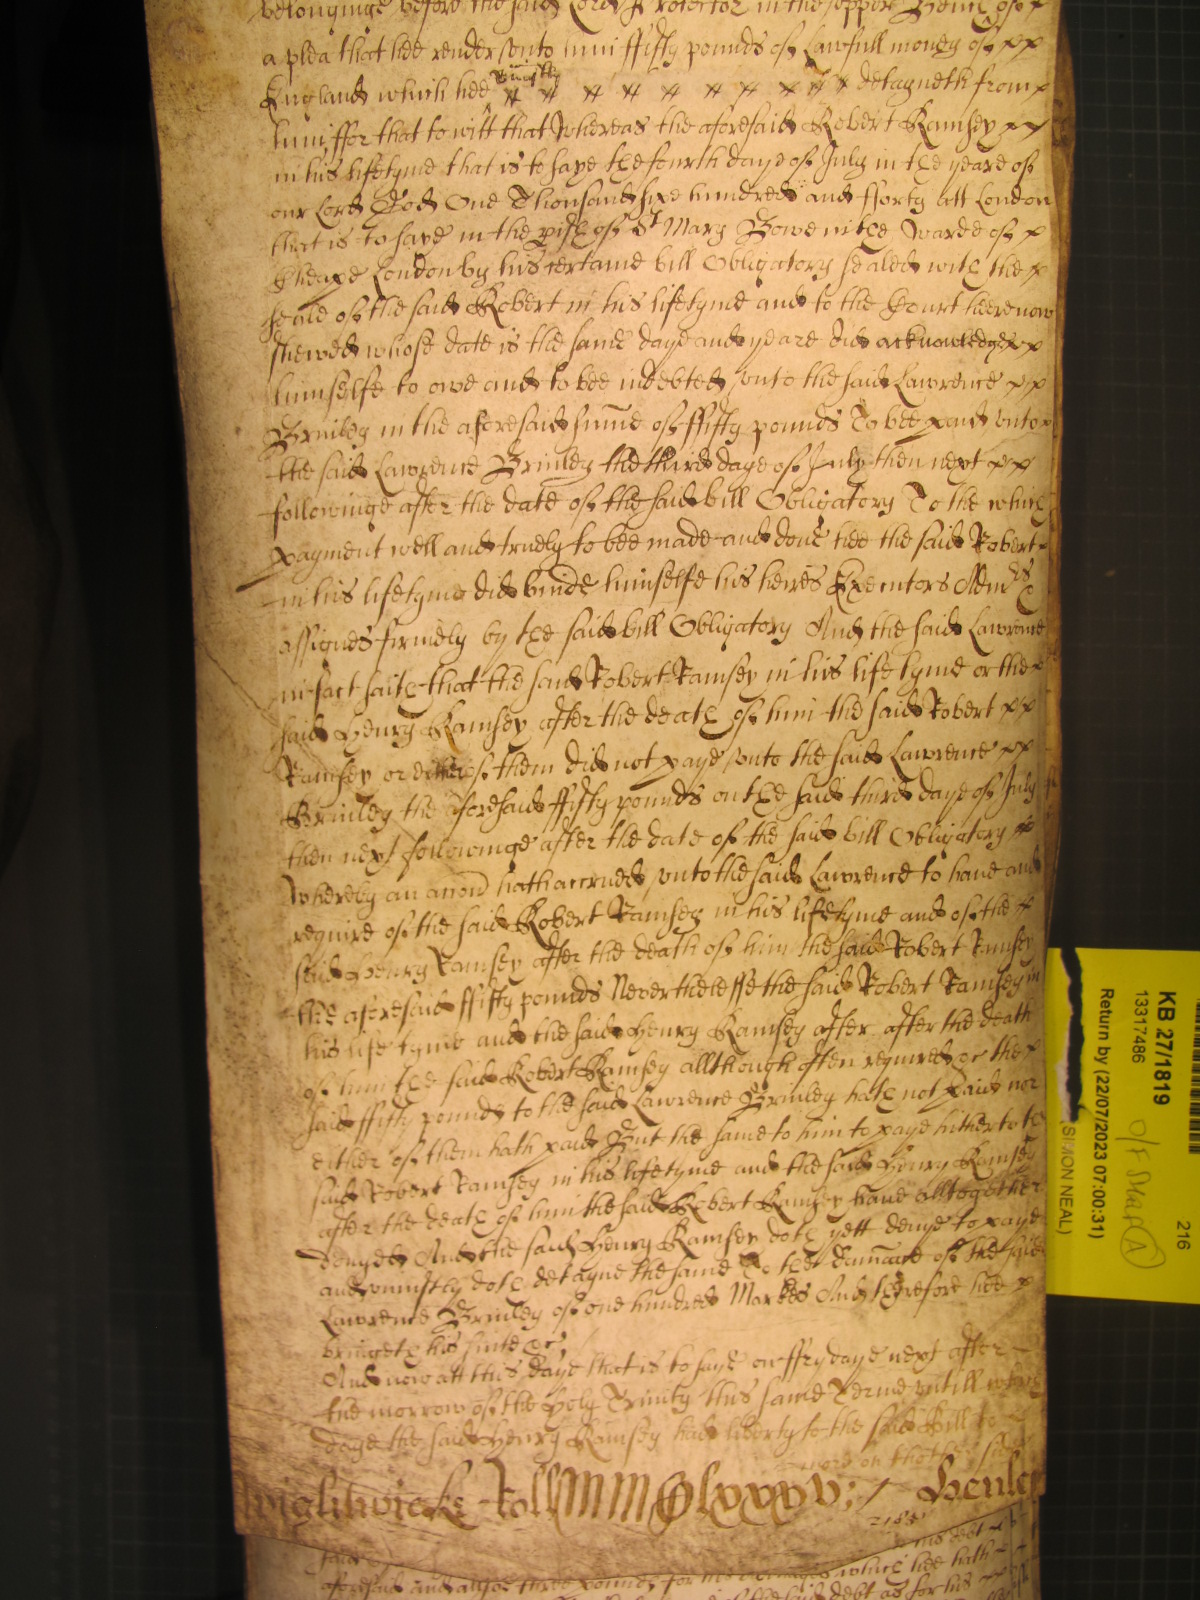 belonginge before the said Lord Protector in the upper Bench of
a plea that hee render unto him ffifty pounds of Lawfull money of
England which hee uniustly detayneth from
him ffor that to witt that Whereas the aforesaid Robert Ramsey
in his lifetyme that is to saye the fourth daye of July in the yeare of
our Lord God One Thousand six hundred and fforty att London
that is to saye in the pish of St Mary Bowe in the Warde of
Cheape London by his certaine bill Obligatory sealed with the
seale of the said Robert in his lifetyme and to the Court heere now
shewed whose date is the same daye and yeare did acknowledge
himselfe to owe and to bee indebted unto the said Lawrence
Brinley in the aforesaid sume of ffifty pounds To bee paid unto
the said Lawrence Brinley the third daye of July then next
followinge after the date of the said bill Obligatory To the which
payment well and truely to bee made and done hee the said Robert
in his lifetyme did binde himselfe his heires Executors Admrs &
assignes firmely by the said bill Obligatory And the said Lawrence
in fact saith that the said Robert Ramsey in his life tyme or the
said Henry Ramsey after the death of him the said Robert
Ramsey or either of them did not paye unto the said Lawrence
Brinley the aforesaid ffifty pounds on the said third daye of July
then next followinge after the date of the said bill Obligatory
Whereby an accon hath accrued unto the said Lawrence to have and
require of the said Robert Ramsey in his lifetyme and of the
said Henry Ramsey after the death of him the said Robert Ramsey
the aforesaid ffifty pounds Neverthelesse the said Robert Ramsey in
his life tyme and the said Henry Ramsey after after the death
of him the said Robert Ramsey allthough often required &c the
said ffifty pounds to the said Lawrence Brinley hath not paid nor
either of them hath paid But the same to him to paye hitherto the
said Robert Ramsey in his lifetyme and the said Henry Ramsey
after the death of him the said Robert Ramsey have alltogether
denyed And the said Henry Ramsey doth yett denye to paye
and uniustly doth detayne the same To the damage of the said
Lawrence Brinley of one hundred Markes And therefore hee
bringeth his suite &c
And now att this daye that is to saye on ffrydaye next after
the morrow of the Holy Trinity this same Terme untill which
daye the said Henry Ramsey had liberty to the said Bill to
more on thother side
Wightwicke Roll MMClxxxv; Henley
2185
aforesaid and allsoe three pounds for his damages which hee hath
KB 27/1819
216
13317486
O/F Strap (A)
Return by (22/07/2023 07:00:31)
(SIMON NEAL)